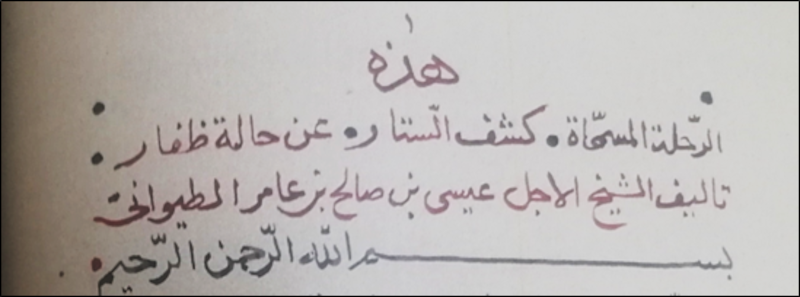 ١
هذه
الرّحلة المسمّاة • كشف السّتار • عن حالة ظفار
تاليف الشيخ الاجل عيسى بن صالح بن عامر الطيواني
بسم الله الرّحمن الرّحيم